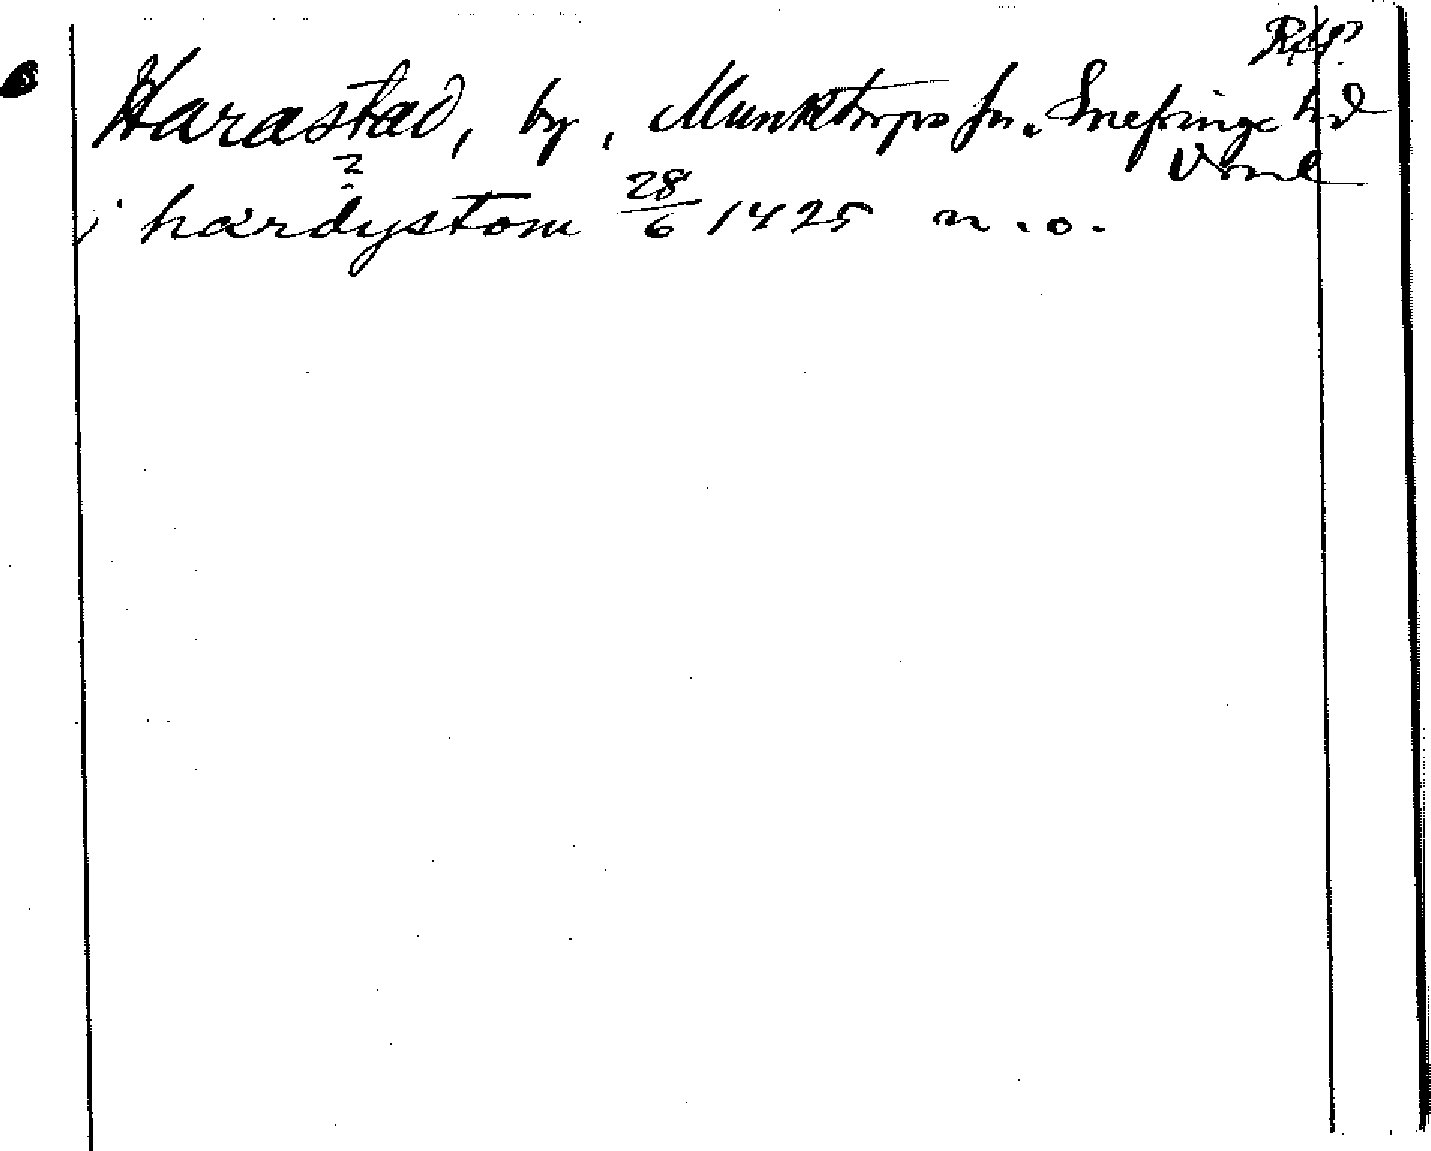 RAP.
Harastad, by, Munktorps sn. Snefringe hd
Vsml
?
i hardystom 28/6 1425 n.o.